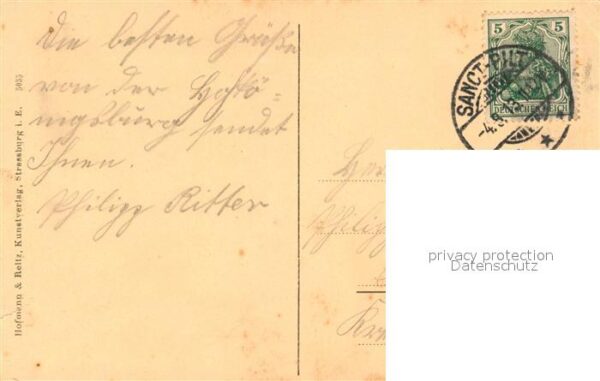 Die besten Grüße
von der Hohkö-
nigsburg sendet
Ihnen.
Philipp Ritter
Hofmann & Reitz, Kunstverlag, Strassburg i. E. 5055
5 5
DEUTSCHES REICH
SANCT-PILT
Philipp
privacy protection
Datenschutz